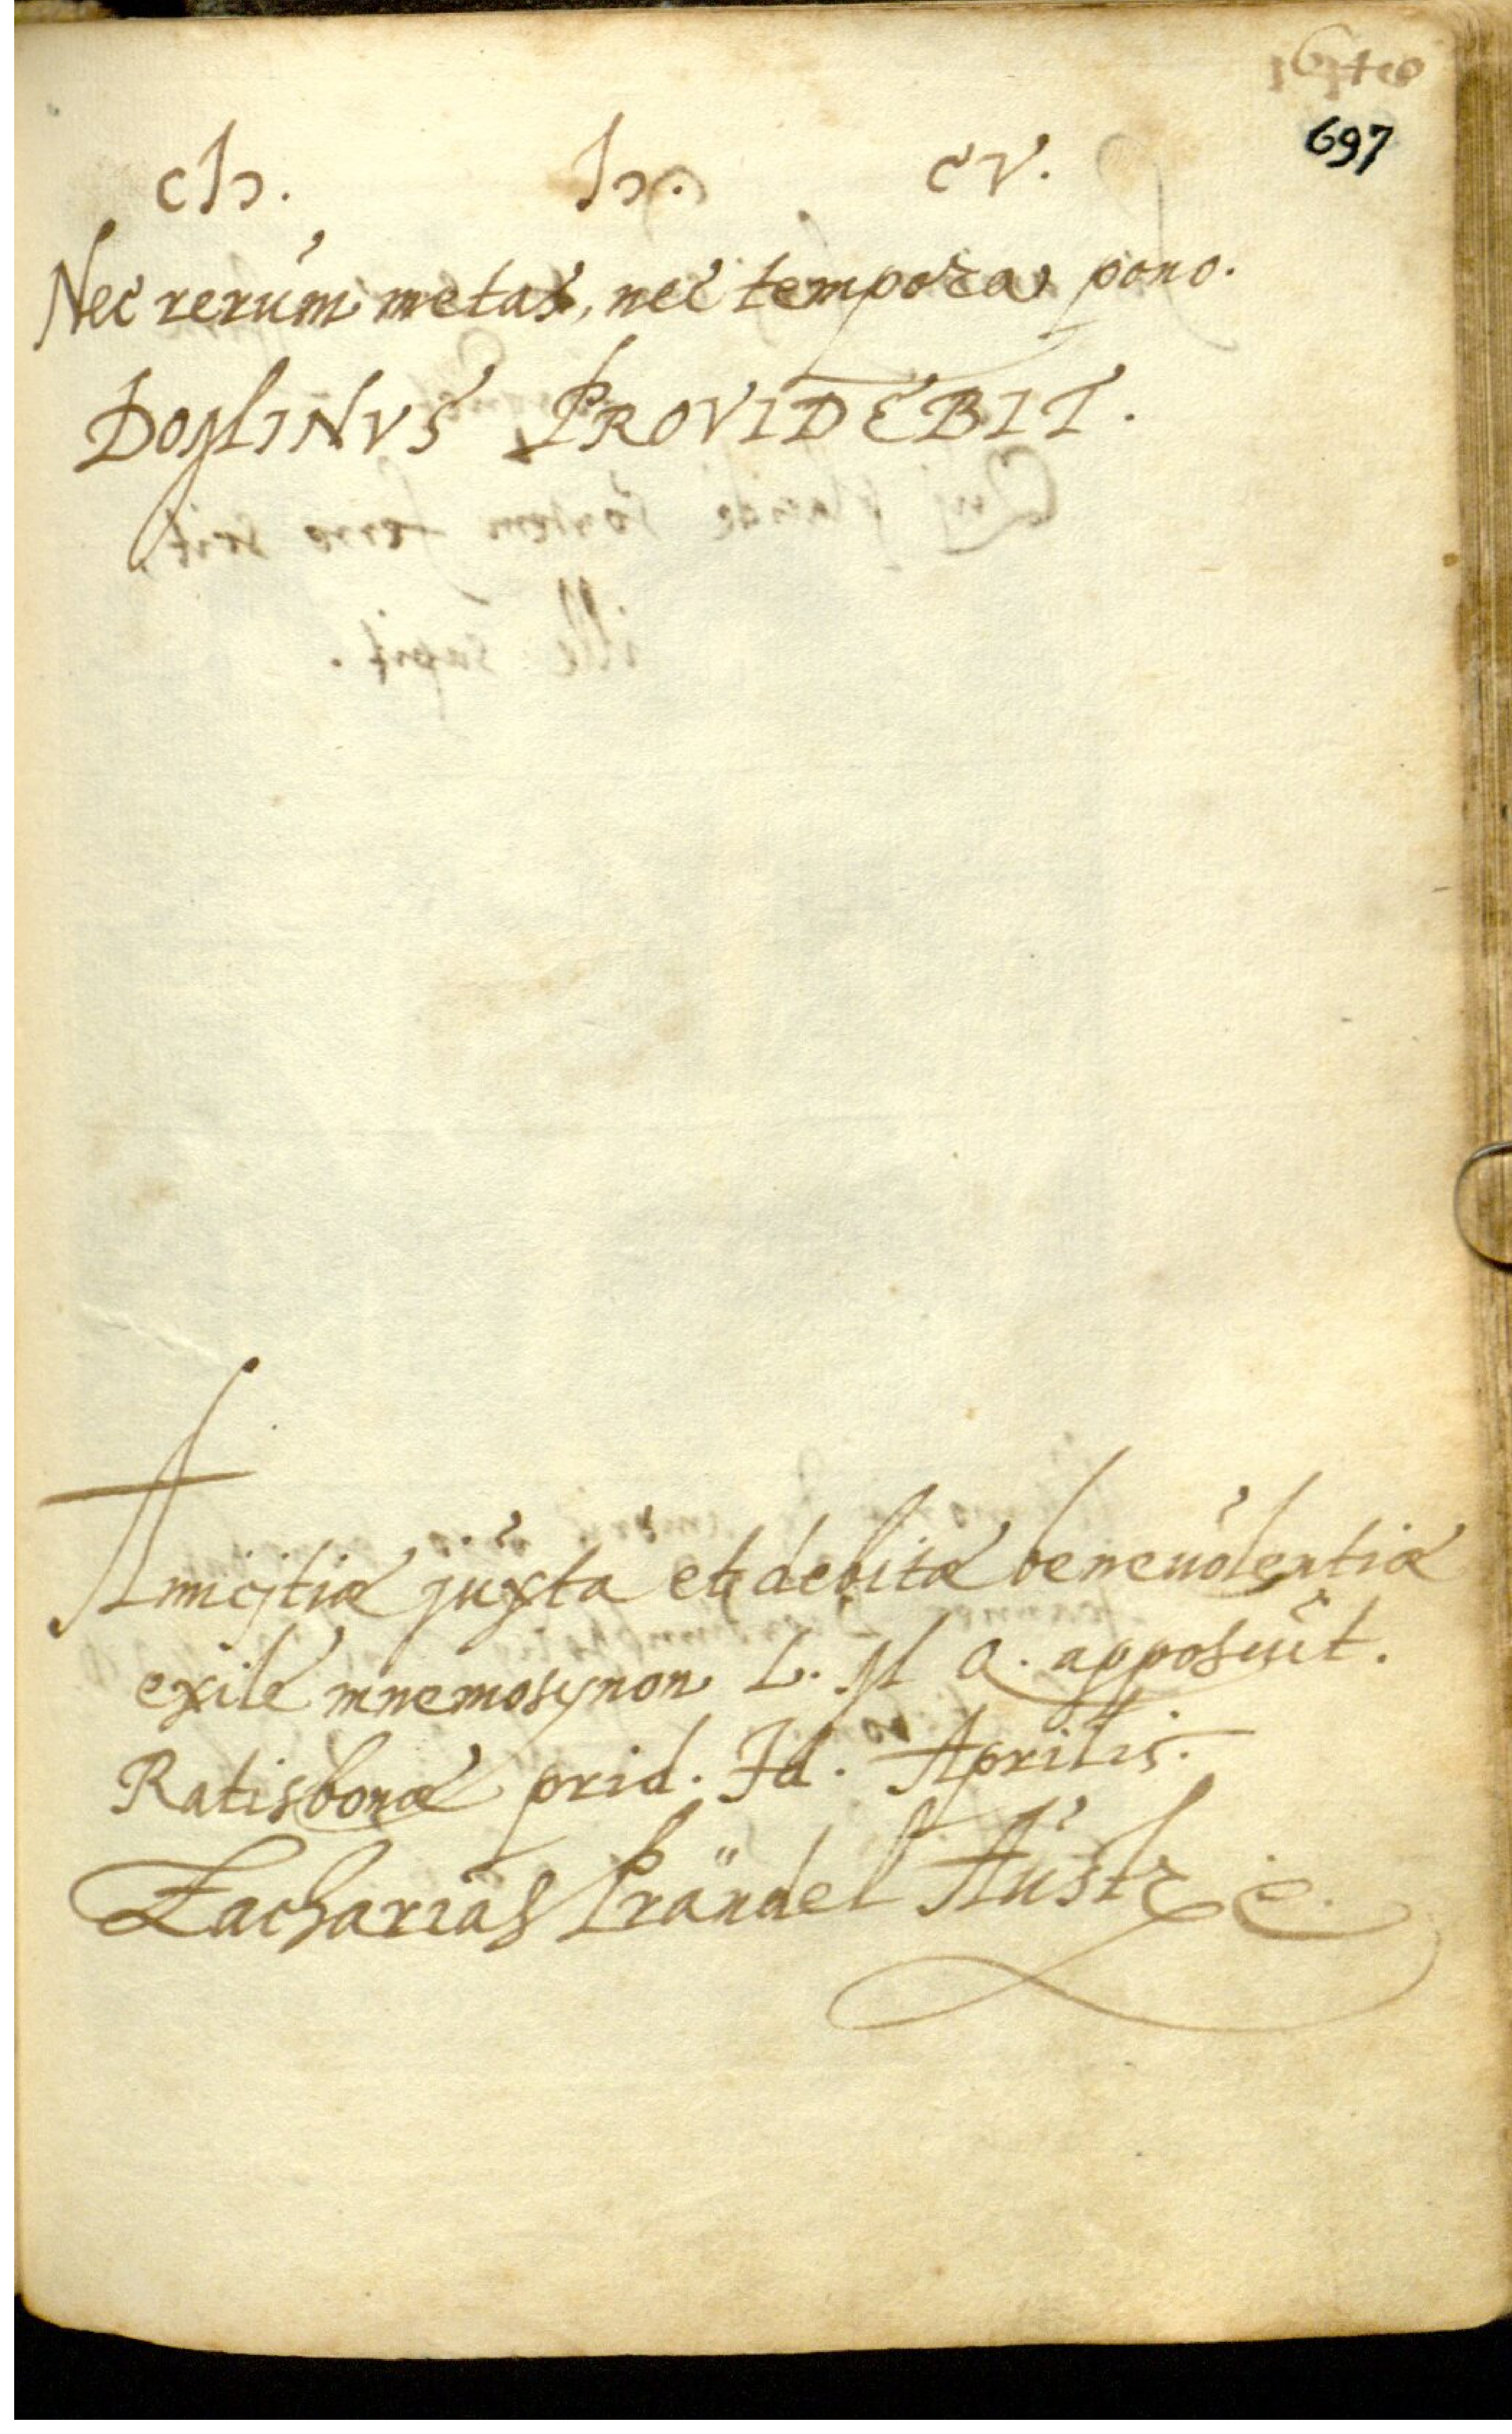 697
cIɔ. Iɔ. cV.
Nec rerum metas, nec tempora pono.
DOMINVS PROVIDEBIT.
Amicitiæ juxta et debitæ benevolentiæ
exile mnemosynon L. M Q. apposuit.
Ratisbonæ prid. Id. Aprilis.
Zacharias Prändel Austr